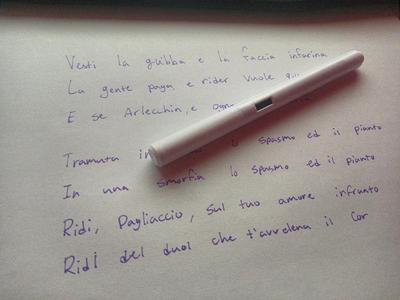 Vesti la giubba e la faccia infarina
La gente paga e rider vuole
E se Arlecchin, e
Tramuta in lo spasmo ed il pianto
In una smorfia lo spasmo ed il pianto
Ridi, Pagliaccio, sul tuo amore infranto
Ridi del duol che t'avvelena il cor